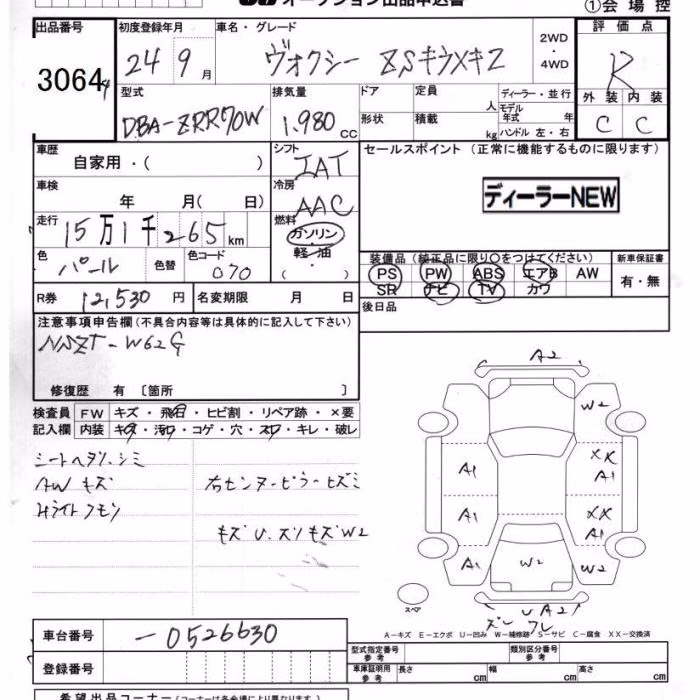 オークション出品申込書
①会場控
出品番号 初度登録年月 車名・グレード 評価点
3064 24 9月 ヴォクシー ZSキラメキ2 2WD・4WD R
型式 排気量 ドア 定員 人 ディーラー・並行
DBA-ZRR70W 1.980 CC 形状 積載 kg モデル年式 年 ハンドル 左・右
外装 内装
C C
車歴 自家用・( ) シフト IAT セールスポイント (正常に機能するものに限ります)
車検 年 月( 日) 冷房 AAC ディーラーNEW
走行 15万1千265km 燃料 ガソリン・軽油 ( ・ )
色 パール 色替 色コード 070
装備品 (純正品に限り○をつけてください) 新車保証書
PS PW ABS エアB AW 有・無
SR ナビ TV カワ
R券 12,530円 名変期限 月 日 後日品
注意事項申告欄 (不具合内容等は具体的に記入して下さい)
NSZT-W62G
修復歴 有 〔箇所 〕
検査員記入欄 FW キズ・飛石・ヒビ割・リペア跡・×要
内装 キズ・汚れ・コゲ・穴・スレ・キレ・破レ
シートヘタリ、シミ
AWキズ 右センターピラーヒズミ
Hライトクモリ
キズU.ズリキズW2
A2
W2
A1 XX A1
A1 XX A1
A1 W2 W2
スペア
UA2
ズレ
A-キズ E-エクボ U-凹み W-補修跡 S-サビ C-腐食 XX-交換済
車台番号 -0526630
型式指定番号 参考 類別区分番号 参考
登録番号 車庫証明用 参考 長さ cm 幅 cm 高さ cm
希望出品コーナー (コーナーは各会場により異なります)